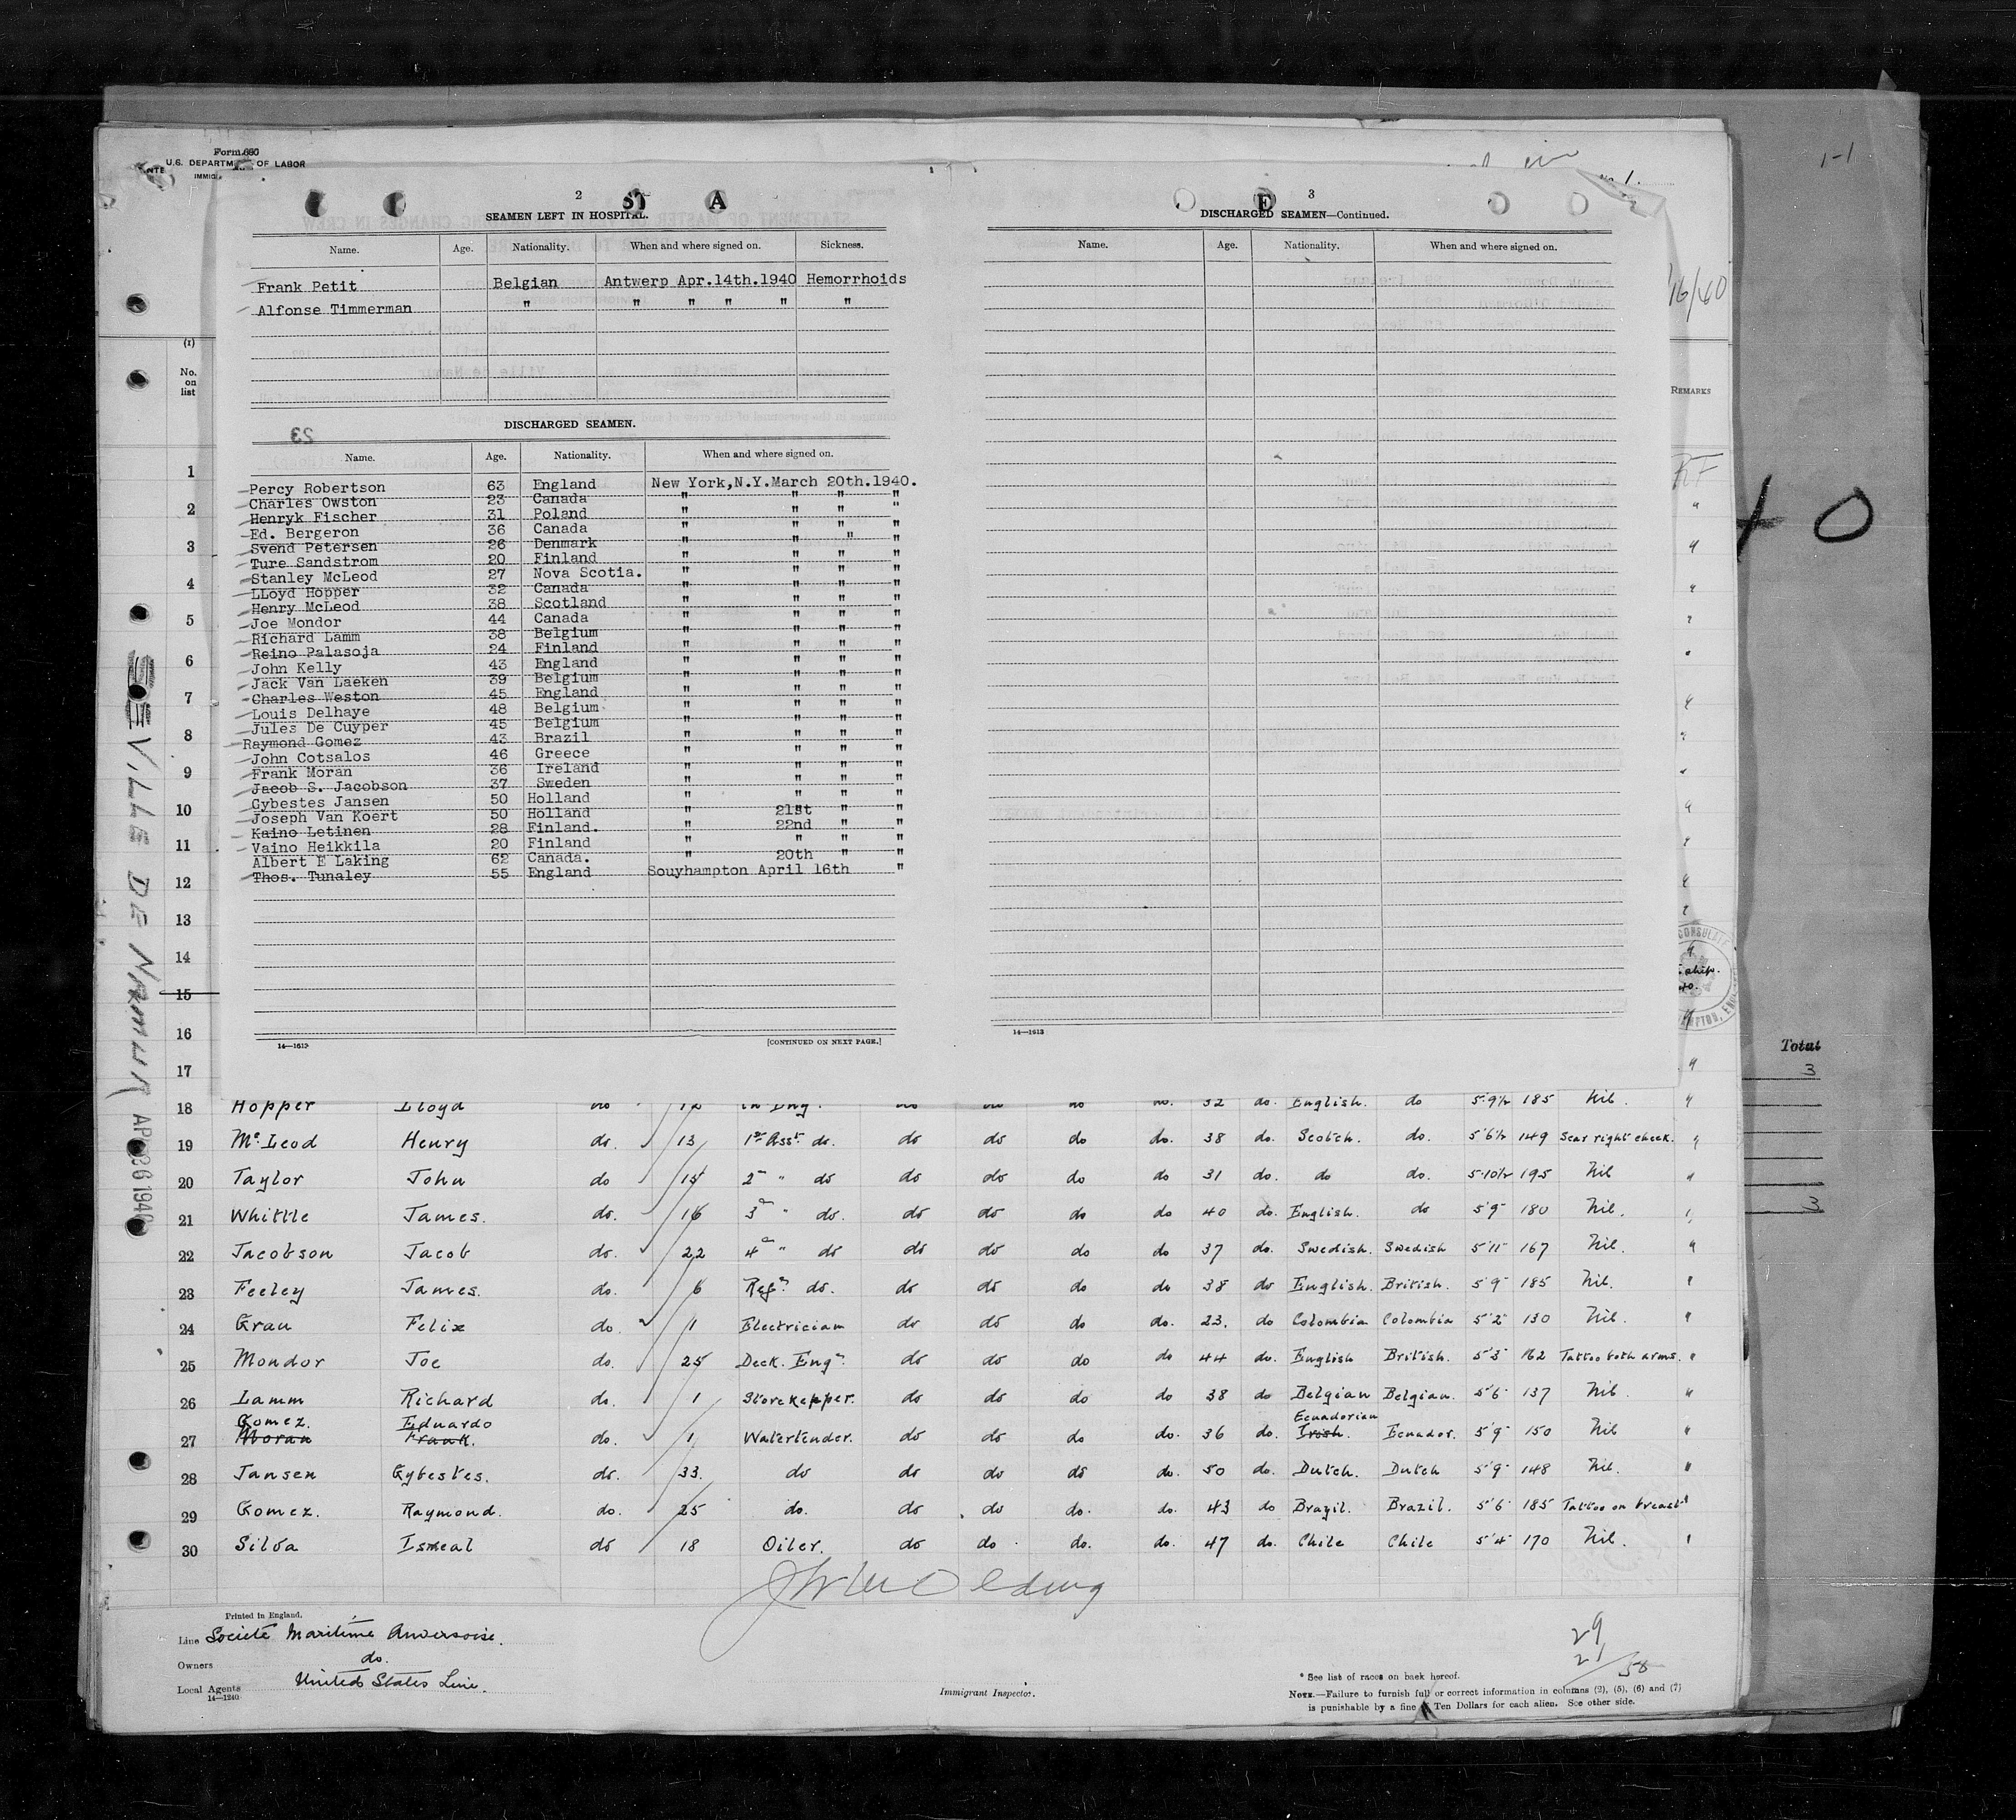 Form 680
U.S. DEPARTM OF LABOR
IMMIG
2
SEAMEN LEFT IN HOSPITAL.
Name. Age. Nationality. When and where signed on. Sickness.
Frank Petit Belgian Antwerp Apr.14th.1940 Hemorrhoids
Alfonse Timmerman " " " " " "
DISCHARGED SEAMEN.
Name. Age. Nationality. When and where signed on.
Percy Robertson 63 England New York,N.Y.March 20th.1940.
Charles Owston 23 Canada " " " "
Henryk Fischer 31 Poland " " " "
Ed. Bergeron 36 Canada " " " "
Svend Petersen 26 Denmark " " " "
Ture Sandstrom 20 Finland " " " "
Stanley McLeod 27 Nova Scotia. " " " "
LLoyd Hopper 32 Canada " " " "
Henry McLeod 38 Scotland " " " "
Joe Mondor 44 Canada " " " "
Richard Lamm 38 Belgium " " " "
Reino Palasoja 24 Finland " " " "
John Kelly 43 England " " " "
Jack Van Laeken 39 Belgium " " " "
Charles Weston 45 England " " " "
Louis Delhaye 48 Belgium " " " "
Jules De Cuyper 45 Belgium " " " "
Raymond Gomez 43 Brazil " " " "
John Cotsalos 46 Greece " " " "
Frank Moran 36 Ireland " " " "
Jacob S. Jacobson 37 Sweden " " " "
Gybestes Jansen 50 Holland " " " "
Joseph Van Koert 50 Holland " 21st " "
Kaino Letinen 28 Finland. " 22nd " "
Vaino Heikkila 20 Finland " " " "
Albert E Laking 62 Canada. " 20th " "
Thos. Tunaley 55 England Souyhampton April 16th "
14—1613 [CONTINUED ON NEXT PAGE.]
3
DISCHARGED SEAMEN—Continued.
Name. Age. Nationality. When and where signed on.
14—1613
16/40
REMARKS
RF
1-1
+ 0
Total
3
3
(1)
No. on list
1
2
3
4
5
6
7
8
9
10
11
12
13
14
15
16
17
VILLE DE NAMUR
APR 26 1940
18 Hopper Lloyd do 12 Ch Eng. do do do do. 32 do. English. do 5'9½ 185 Nil. "
19 McLeod Henry do. 13 1st Asst. do. do do do do. 38 do. Scotch. do. 5'6½ 149 Scar right cheek. "
20 Taylor John do 15 2nd " do do do do do 31 do. do do. 5'10½ 195 Nil "
21 Whittle James. do. 16 3rd " do. do do do do 40 do. English. do 5'9" 180 Nil. "
22 Jacobson Jacob do. 22 4th " do do do do do 37 do. Swedish. Swedish 5'11" 167 Nil. "
23 Feeley James. do. 6 Refr. do. do do do do 38 do English. British. 5'9" 185 Nil. "
24 Grau Felix do. 1 Electrician do do do do. 23. do Colombia Colombia 5'2" 130 Nil. "
25 Mondor Joe do. 25 Deck. Engr. do do do do 44 do. English British. 5'3" 162 Tattoo both arms. "
26 Lamm Richard do. 1 Storekepper. do do do do 38 do Belgian Belgian. 5'6" 137 Nil. "
Gomez. Eduardo Ecuadorian
27 Moran Frank. do. 1 Watertender. do do do do. 36 do. Irish. Ecuador. 5'9" 150 Nil "
28 Jansen Gybestes. do. 33. do do do do do. 50 do. Dutch. Dutch 5'9" 148 Nil. "
29 Gomez. Raymond. do. 25 do. do do do. do. 43 do Brazil. Brazil. 5'6" 185 Tattoo on breast "
30 Silva Ismeal do 18 Oiler. do do do. do. 47 do. Chile Chile 5'4" 170 Nil. "
Printed in England.
Line Société Maritime Anversoise.
Owners do.
Local Agents United States Line.
14—1240
Immigrant Inspector.
29
21
58
* See list of races on back hereof.
NOTE.—Failure to furnish full or correct information in columns (2), (5), (6) and (7)
is punishable by a fine of Ten Dollars for each alien. See other side.